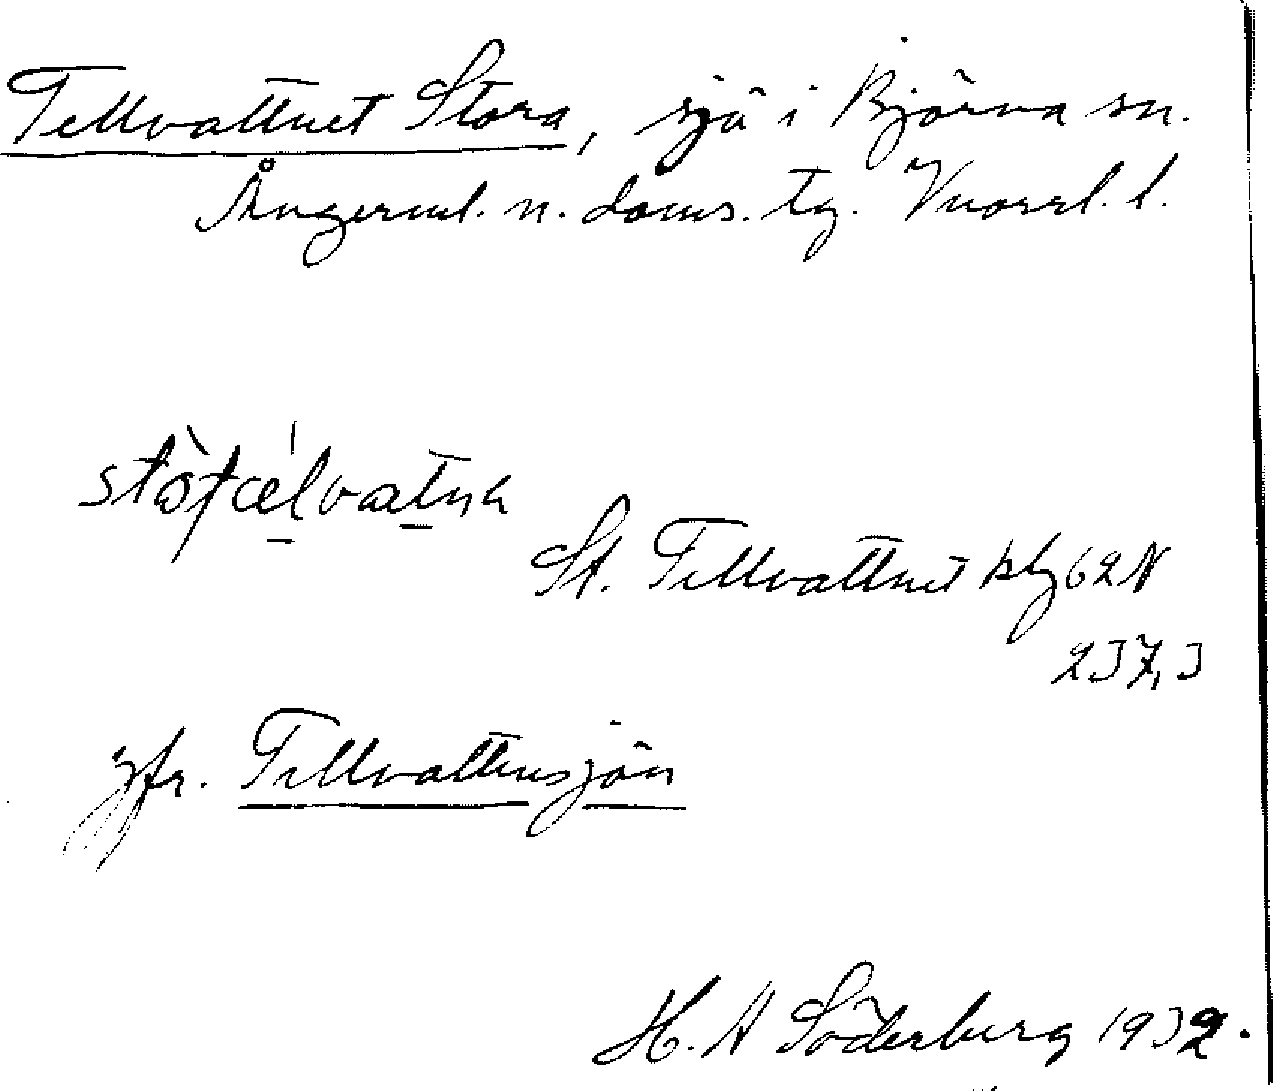 Tellvattnet Stora, sjö i Björna sn.
Ångerml. n. doms. tg. Vnorrl. l.
St. Tellvattnet kbg 62 N
237,3
jfr. Tellvattensjön
H. A Söderberg 1932.